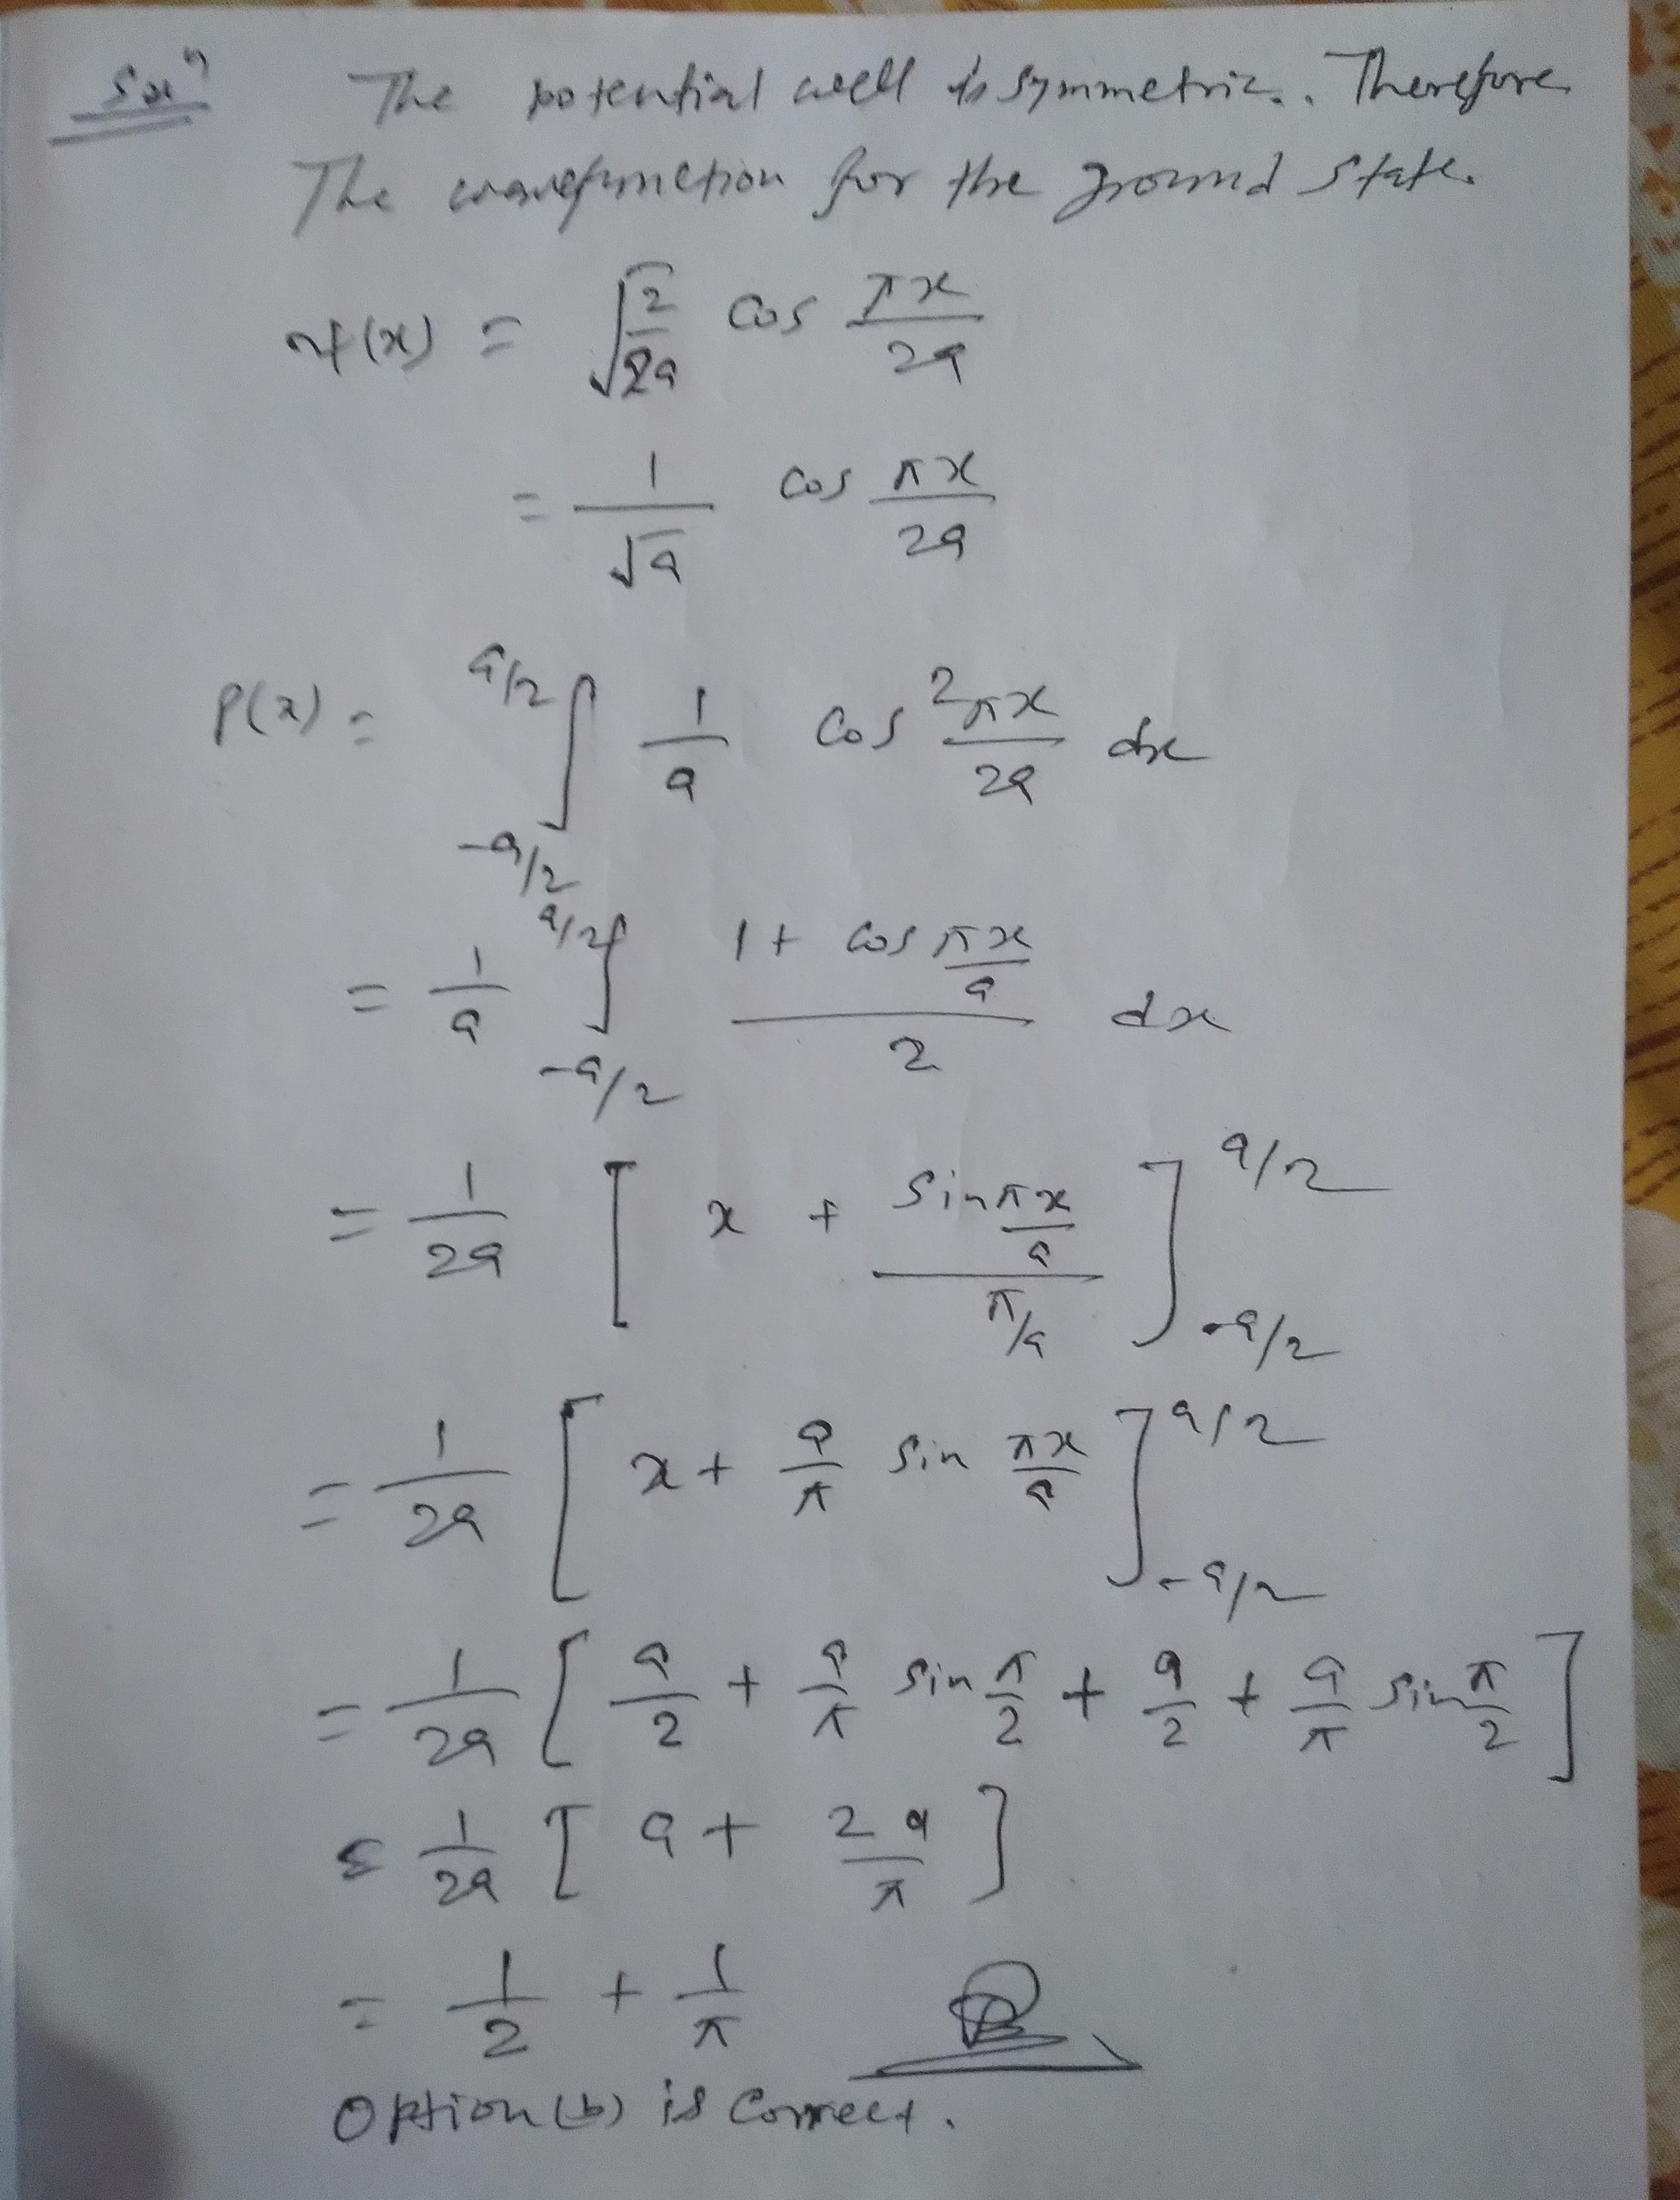 Solⁿ The potential well is symmetric. Therefore
The wavefunction for the ground state.
ψ(x) = √(2/2a) cos πx/2a
= 1/√a cos πx/2a
P(x) = ∫_{-a/2}^{a/2} 1/a cos² πx/2a dx
= 1/a ∫_{-a/2}^{a/2} (1 + cos πx/a)/2 dx
= 1/2a [ x + (sin πx/a)/(π/a) ]_{-a/2}^{a/2}
= 1/2a [ x + a/π sin πx/a ]_{-a/2}^{a/2}
= 1/2a [ a/2 + a/π sin π/2 + a/2 + a/π sin π/2 ]
= 1/2a [ a + 2a/π ]
= 1/2 + 1/π
Option (b) is correct.